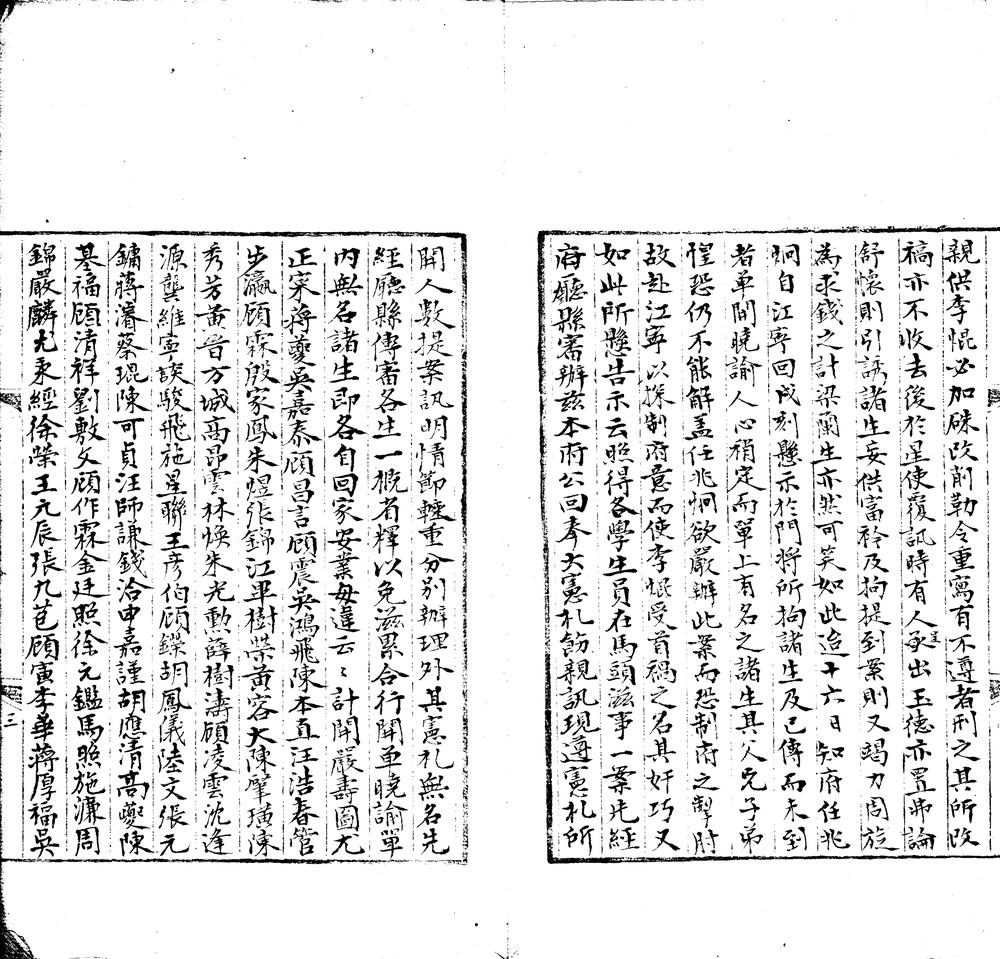 親供李焜必加硃改削勒令重寫有不遵者刑之其所改
稿亦不收去後於星使覆訊時有人遞出玉德亦置弗論
舒懷則引誘諸生妄供富衿及拘提到案則又竭力周旋
為求錢之計梁蘭生亦然可笑如此迨十六日知府任兆
炯自江寧回戌刻懸示於門將所拘諸生及已傳而未到
者單開曉諭人心稍定而單上有名之諸生其父兄子弟
惶恐仍不能解蓋任兆炯欲嚴辦此案而恐制府之掣肘
故赴江寧以探制府意而使李焜受首禍之名其奸巧又
如此所懸告示云照得各學生員在馬頭滋事一案先經
府廳縣審辦茲本府公回奉大憲札飭親訊現遵憲札所
開人數提案訊明情節輕重分別辦理外其憲札無名先
經廳縣傳審各生一概省釋以免滋累合行開單曉諭單
內無名諸生即各自回家安業毋違云云計開嚴壽圖尤
正寀蔣夔吳嘉泰顧昌言顧震吳鴻飛陳本直汪浩春管
步瀛顧霖殷家鳳朱煜張錦江畢樹棠黃容大陳肇璜陳
秀芳黃晉方城高昂雲林煥朱光勳薛樹濤顧凌雲沈逢
源龔維寧談駿飛施星聯王彥伯顧鑅胡鳳儀陸文張元
鏞蔣濬蔡琨陳可貞汪師謙錢洽申嘉謹胡應清高夔陳
基福顧清祥劉敷文顧作霖金廷照徐元鑑馬照施濂周
錦嚴麟尤秉經徐榮王元辰張九苞顧寅李華蔣厚福吳
三